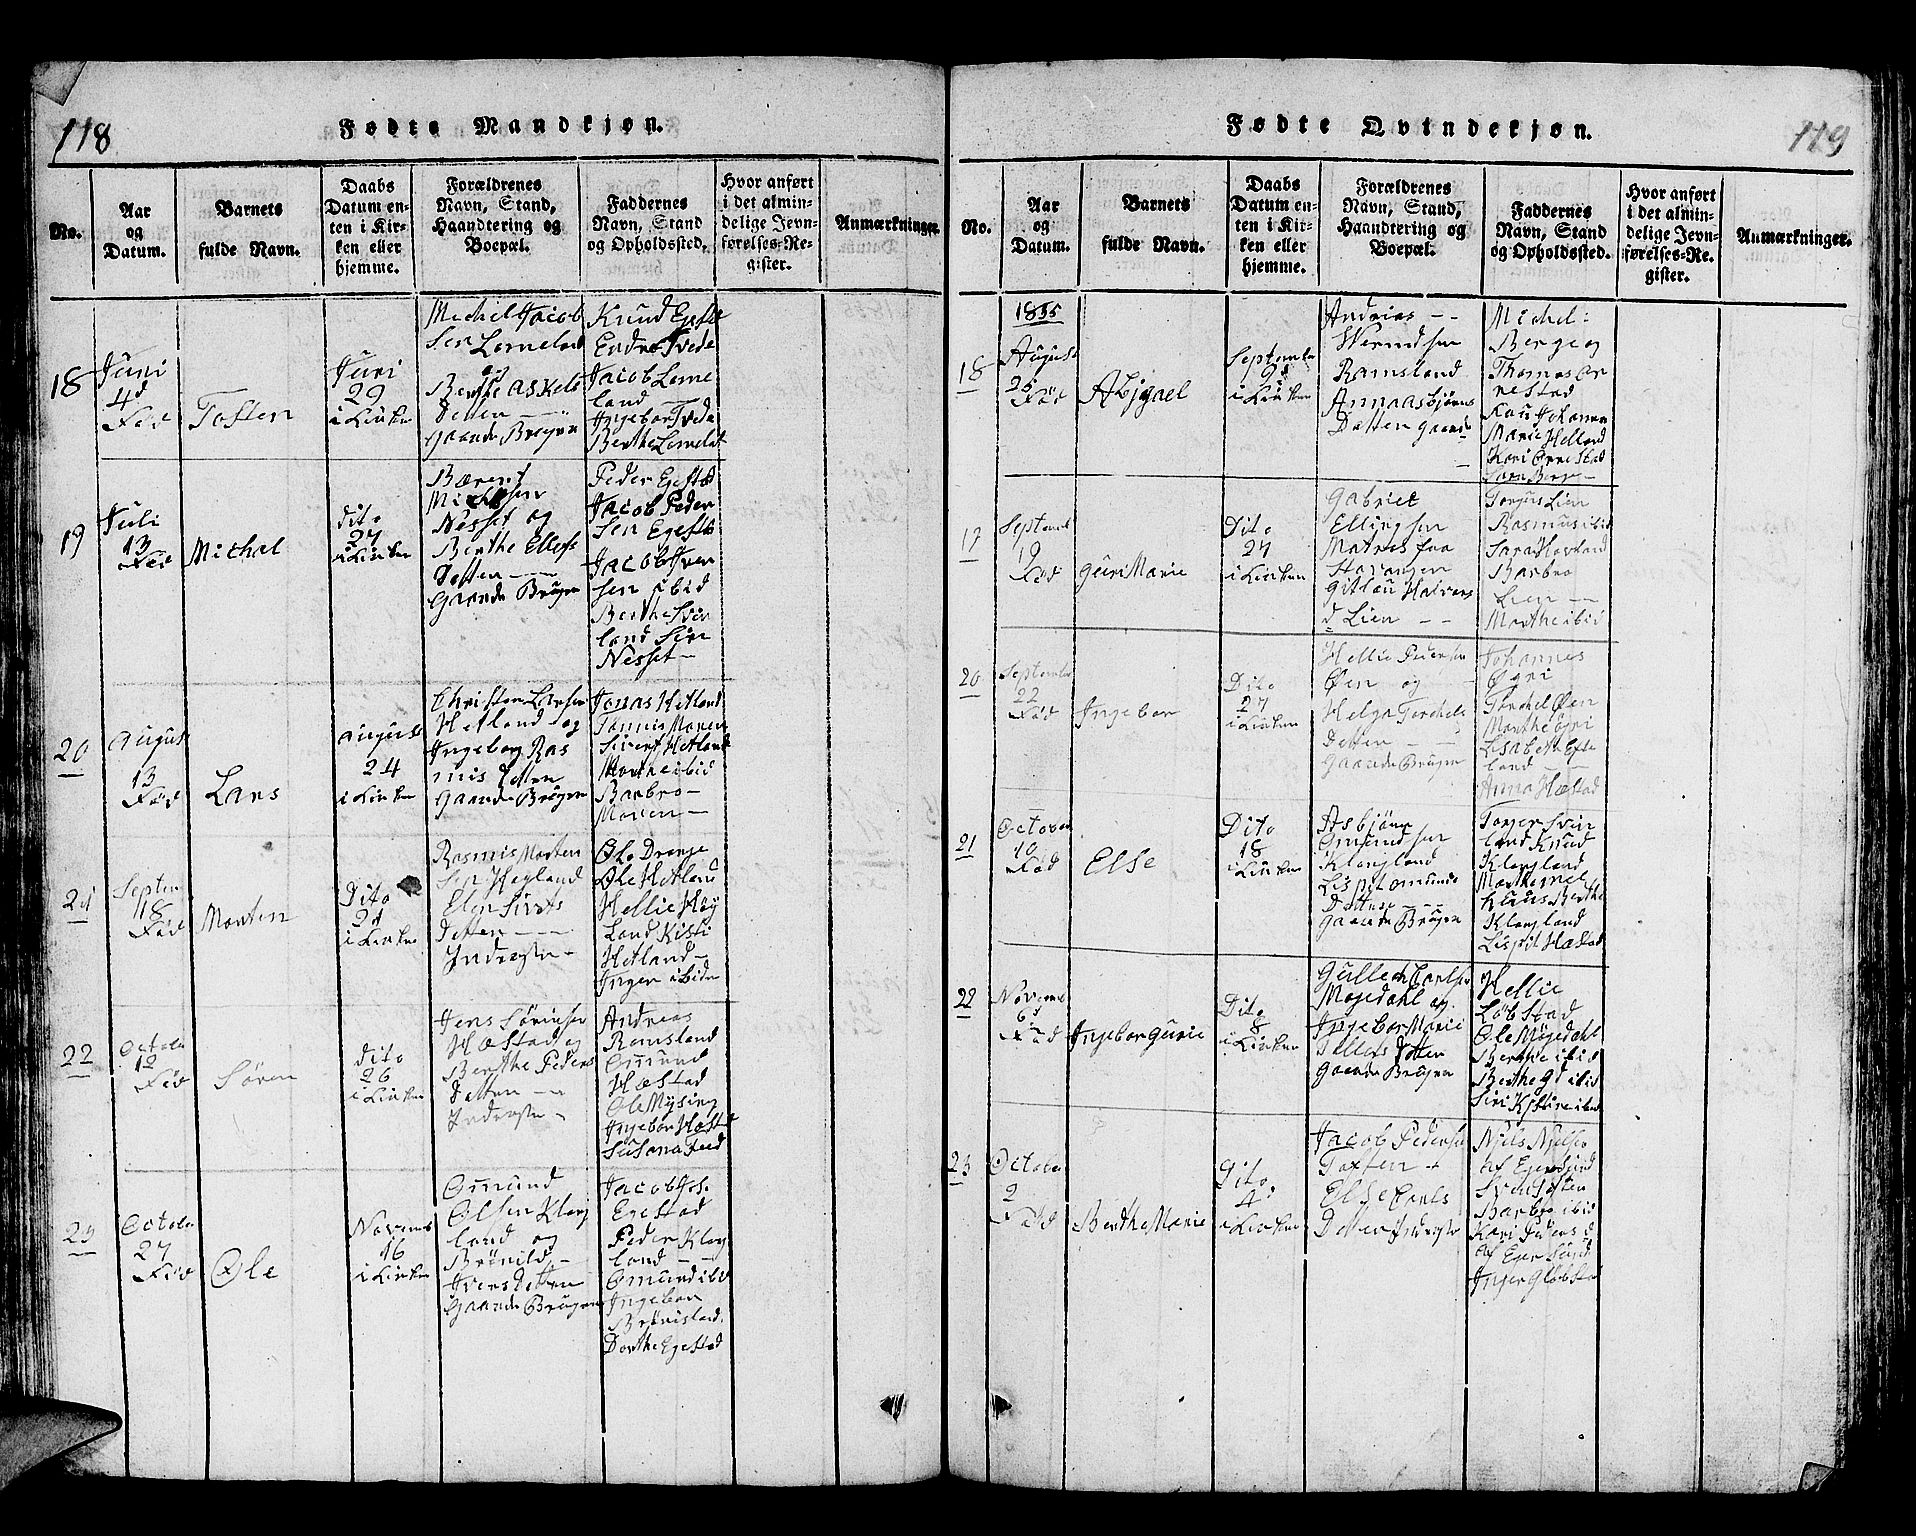 118
Fødte Mandkjøn.
No.
Aar
og
Datum.
Barnets
fulde Navn.
Daabs
Datum en-
ten i Kir-
ken eller
hjemme.
Forældrenes
Navn, Stand,
Haandtering og
Boepæl.
Faddernes
Navn, Stand
og Opholdssted.
Hvor anført
i det almin-
delige Jevn-
førelses-Re-
gister.
Anmærkninger.
18
Juni
4d
Fød
Tosten
Juni
29
i Kirken
Michel Jacob
Sen Lomeland
og
Berthe Askels
Datten
Gaande Brugen
Knud Egeste
Endre Tvede
Jacob Lome
land
Ingebor Tveda
Berthe Lomelat
19
Juli
13
Fød
Michal
Dito
27
i Kirken
Bærent
Nesset og
Berthe Ellefs
Datten
Gaande Brugen
Peder Egestad
Jacob Peder
Sen Egestd
Jacob Iver
sen ibid
Berthe Sver
land Siri
Nesset
20
August
13
Fød
Lars
august
24
i Kirken
Christen Larsen
Hetland og
Ingeborg Ras
mis Datten
Gaande Brugen
Jonas Hetland
Tonnis Moren
Sivert Hetland
Marthe ibid
Barbro
Moren
21
Septem
18
Fød
Morten
Dito
21
i Kirken
Rasmis Morten
Sen Høyland
Elen Sivrts
Datten
Inderste
Ole Drange
Ole Hetland
Hellie Høy
Land Kisti
Hetland
Inger ibide
22
Octobr
12
Fød
Søren
Dito
26
i Kirken
Jens Sørinsen
Hæstad og
Berthe Peders
Datten
Inderste
Andreas
Ramsland
Omund
Hæstad
Ole Mysing
Ingebor Hæst
Susana Fred
23
Octobr
27
Fød
Ole
Novemb
16
i Kirken
Omund
Olsen Klog
land og
Brønild
Ivers Datten
Gaande Brugen
Jacob Jo.
Egestad
Peder Klog
land
Omund ibid
Ingebor
Brønisland
Dorthe Egestad
119
Fødte Qvindekjøn.
No.
Aar
og
Datum.
Barnets
fulde Navn.
Daabs
Datum en-
ten i Kir-
ken eller
hjemme.
Forældrenes
Navn, Stand,
Haandtering og
Boepæl.
Faddernes
Navn, Stand
og Opholdssted.
Hvor anført
i det almin-
delige Jevn-
førelses-Re-
gister.
Anmærkninger.
1835
18
August
25
Fød
Abjgael
Septembr
9
i Kirken
Andrias
Wermdsen
Ramsland
Anna asbjørns
Datten Gaande
Michel
Berge og
Thomas Or
restad
Marie Helland
Kari Ørrestad
Berge
19
Septemb
19
Fød
Guri Marie
Dito
27
i Kirken
Gabriel
Ellingsen
Matros fra
Gitlau Halvors
d Lien
Torjus Lien
Rasmus ibid
Sara Hovland
Barbro
Lien
Marthe ibid
20
Septembr
22
Fød
Ingebor
Dito
27
i Kirken
Hellie Pedersen
Øen og
Helga Torchels
Datten
Gaande Brugen
Johannes
Øgri
Torchel Øen
Marthe Øgri
Lisabeth Efte
land
Anna Hæstad
21
Octover
10
Fød
Else
Dito
18
i Kirken
Asbjørn
Omundsen
Klongland
Lispet Omunds
Dattese
Gaande Brugen
Torjer Svin
land Knud
Klongland
Berthe
Klongland
Lispit Hæstad
22
Novemb
6d
Fød
Ingebor Gurie
Dito
8
i Kirken
Gulleck Carlsen
Møgedahl og
Ingebor Marie
Tollefs Datten
Gaande Brugen
Hellie
Løbstad
Ole Møgedahl
Berthe ibid
Berthe Gd ibid
Siri Kistine ibid
23
Octobr
2
Fød
Berthe Marie
Dito
4
i Kirken
Jacob Pedersen
Toften
Else Carls
Datten Inderste
Njels Njelsen
af Egersund
Sven Toften
Barbro ibid
Kari Peders d
af Eger Sund
Inger Gløbstad